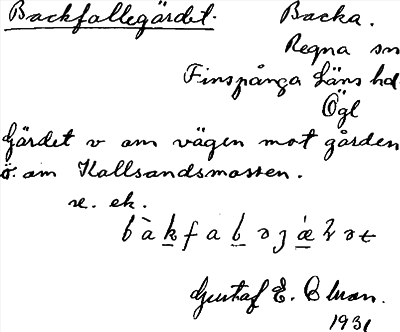 Backfallegärdet. Backa.
Regna sn
Finspånga Läns hd
Ögl
Gärdet v om vägen mot gården
ö. om Kallsandsmossen.
se. ek.
Gustaf E.
1931